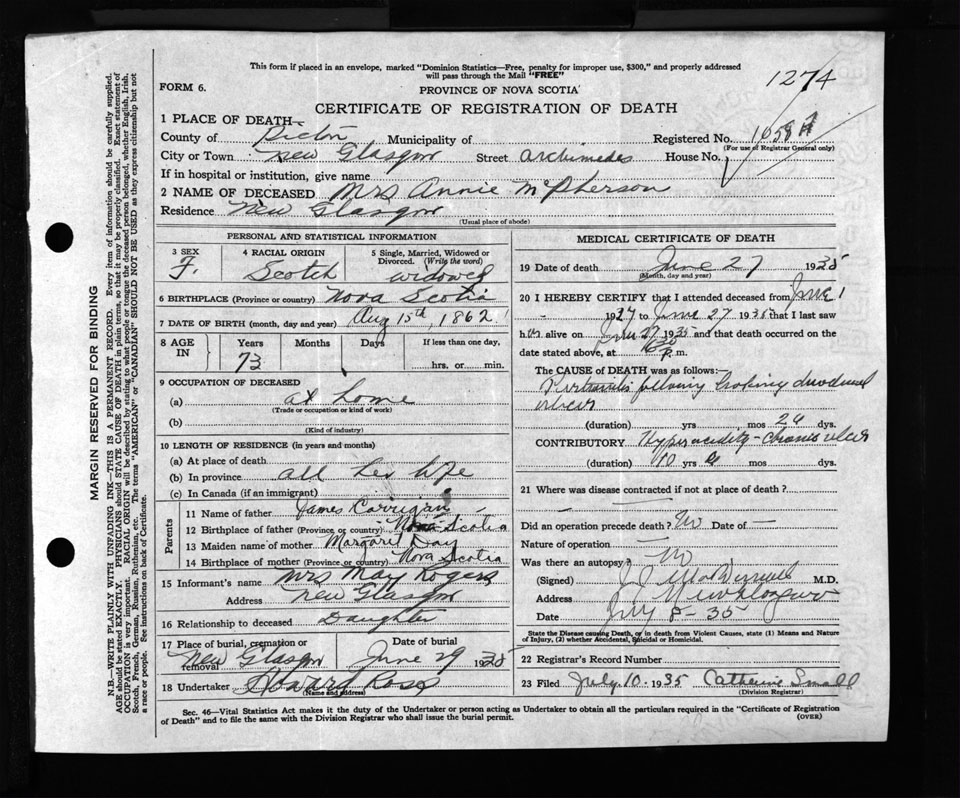 This form if placed in an envelope, marked "Dominion Statistics—Free, penalty for improper use, $300," and properly addressed
will pass through the Mail "FREE"
1274
FORM 6.
PROVINCE OF NOVA SCOTIA
CERTIFICATE OF REGISTRATION OF DEATH
1 PLACE OF DEATH—
County of Pictou Municipality of Registered No.
(For use of Registrar General only)
City or Town New Glasgow Street Archimedes House No.
If in hospital or institution, give name
2 NAME OF DECEASED Mrs Annie McPherson
Residence New Glasgow
(Usual place of abode)
PERSONAL AND STATISTICAL INFORMATION
3 SEX F. 4 RACIAL ORIGIN Scotch 5 Single, Married, Widowed or Divorced. (Write the word) widowed
6 BIRTHPLACE (Province or country) Nova Scotia
7 DATE OF BIRTH (month, day and year) Aug 15th, 1862
8 AGE IN Years 73 Months Days If less than one day, hrs. or min.
9 OCCUPATION OF DECEASED
(a) at home
(Trade or occupation or kind of work)
(b)
(Kind of industry)
10 LENGTH OF RESIDENCE (in years and months)
(a) At place of death
(b) In province all her life
(c) In Canada (if an immigrant)
Parents
11 Name of father James Corrigan
12 Birthplace of father (Province or country) Nova Scotia
13 Maiden name of mother Margaret Day
14 Birthplace of mother (Province or country) Nova Scotia
15 Informant's name Mrs May Rogers
Address New Glasgow
16 Relationship to deceased Daughter
17 Place of burial, cremation or removal New Glasgow Date of burial June 29 1935
18 Undertaker Howard Ross
(Name and address)
MEDICAL CERTIFICATE OF DEATH
19 Date of death June 27 1935
(Month, day and year)
20 I HEREBY CERTIFY that I attended deceased from June 1
to June 27 1935 that I last saw
her alive on June 27 1935 and that death occurred on the
date stated above, at P. m.
The CAUSE of DEATH was as follows:—
duodenal
ulcer
(duration) yrs mos dys.
CONTRIBUTORY Hyperacidity - chronic ulcer
(duration) 10 yrs mos dys.
21 Where was disease contracted if not at place of death? —
Did an operation precede death? No Date of —
Nature of operation —
Was there an autopsy? No
(Signed) M.D.
Address New Glasgow
Date July 8 - 35
State the Disease causing Death, or in death from Violent Causes, state (1) Means and Nature
of Injury, (2) whether Accidental, Suicidal or Homicidal.
22 Registrar's Record Number
23 Filed July 10 1935 Catherine Small
(Division Registrar)
Sec. 46—Vital Statistics Act makes it the duty of the Undertaker or person acting as Undertaker to obtain all the particulars required in the "Certificate of Registration
of Death" and to file the same with the Division Registrar who shall issue the burial permit.
(OVER)
MARGIN RESERVED FOR BINDING
N.B.—WRITE PLAINLY WITH UNFADING INK—THIS IS A PERMANENT RECORD. Every item of information should be carefully supplied.
AGE should be stated EXACTLY. PHYSICIANS should STATE CAUSE OF DEATH in plain terms, so that it may be properly classified. Exact statement of
OCCUPATION is very important. RACIAL ORIGIN will be described by stating to what people or tongue the deceased person belonged, whether English, Irish,
Scotch, French, German, Russian, Ruthenian, etc. The terms "AMERICAN" or "CANADIAN" SHOULD NOT BE USED as they express citizenship but not
a race or people. See instructions on back of Certificate.